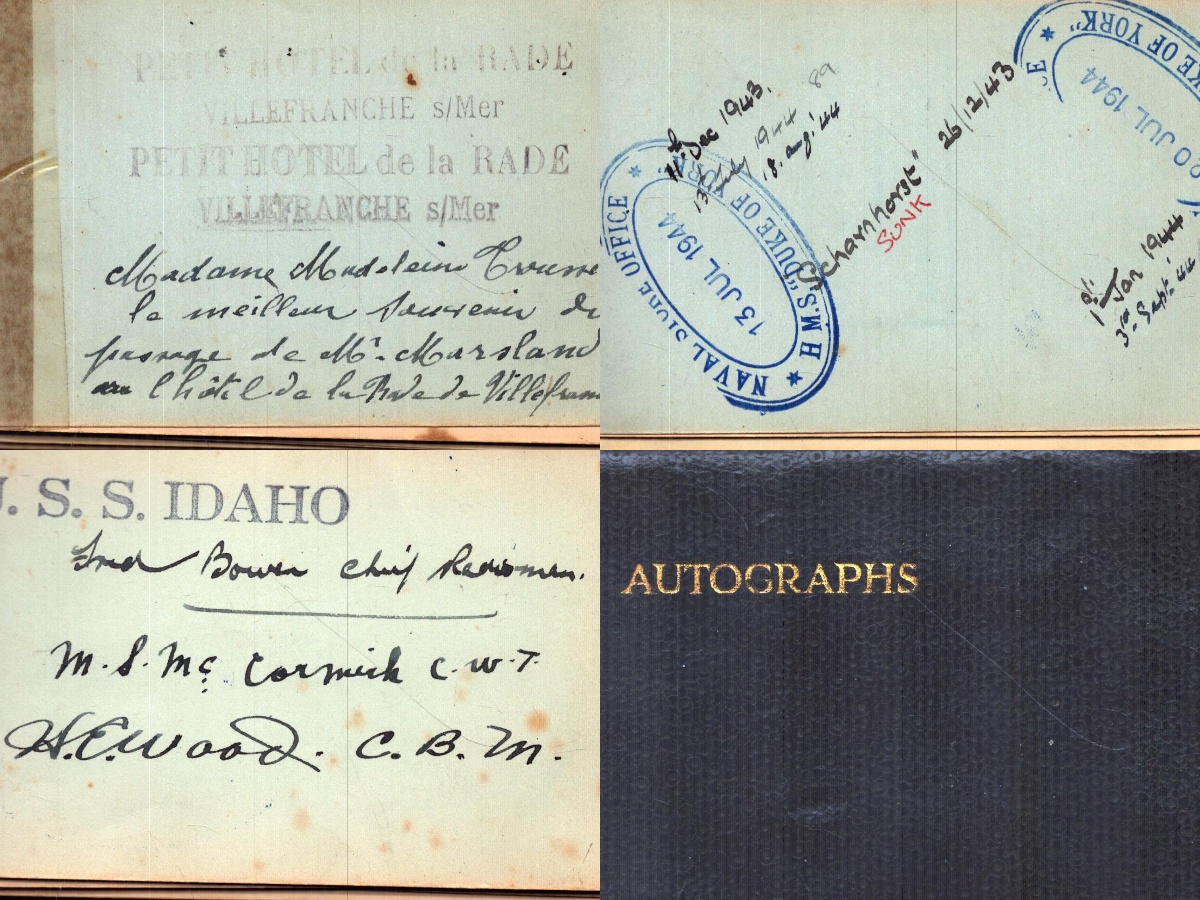 PETIT HOTEL de la RADE
VILLEFRANCHE s/Mer
PETIT HOTEL de la RADE
VILLEFRANCHE s/Mer
Madame Madelein
le meilleur souvenir du
passage de Mr. Marsland
au l'hôtel de la Rade de Villefran
11th Dec 1943.
13th July 1944 89
18. aug '44
NAVAL STORE OFFICE
H.M.S. "DUKE OF YORK"
13 JUL 1944
Scharnhorst" 26/12/43
SUNK
CE
DUKE OF YORK"
20 JUL 1944
1st Jan 1944
3rd Sept. 44
U. S. S. IDAHO
Fred Bowen chief Radioman.
M. S. Mc Cormick C. W. T.
H. E. Wood. C. B. M.
AUTOGRAPHS